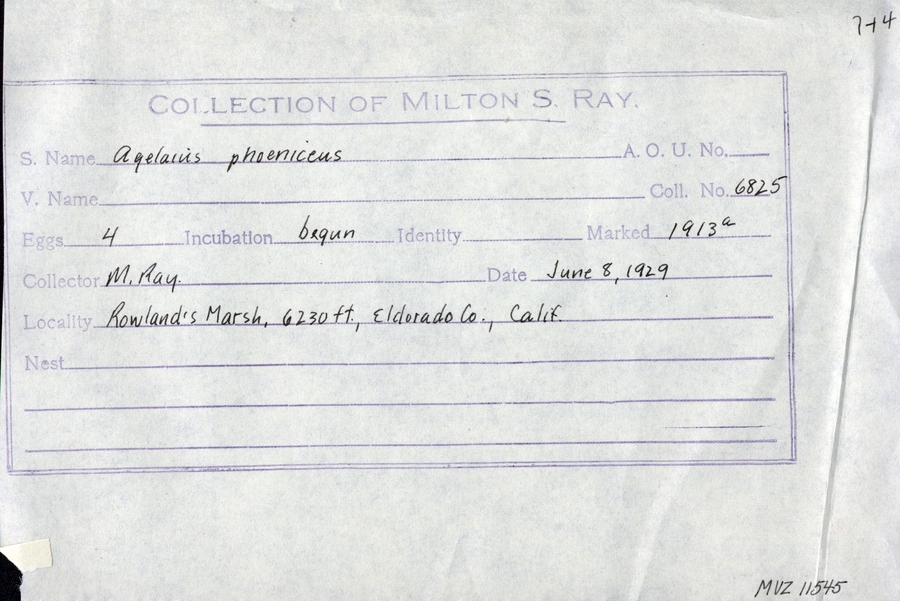 7+4
COLLECTION OF MILTON S. RAY.
S. Name Agelaius phoeniceus A. O. U. No.
V. Name Coll. No. 6825
Eggs 4 Incubation begun Identity Marked 1913a
Collector M. Ray. Date June 8, 1929
Locality Rowland's Marsh, 6230 ft., Eldorado Co., Calif.
Nest
MVZ 11545